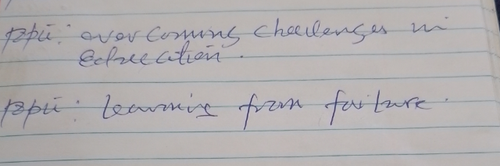 overcoming challenges in
Education.
learning from failure.